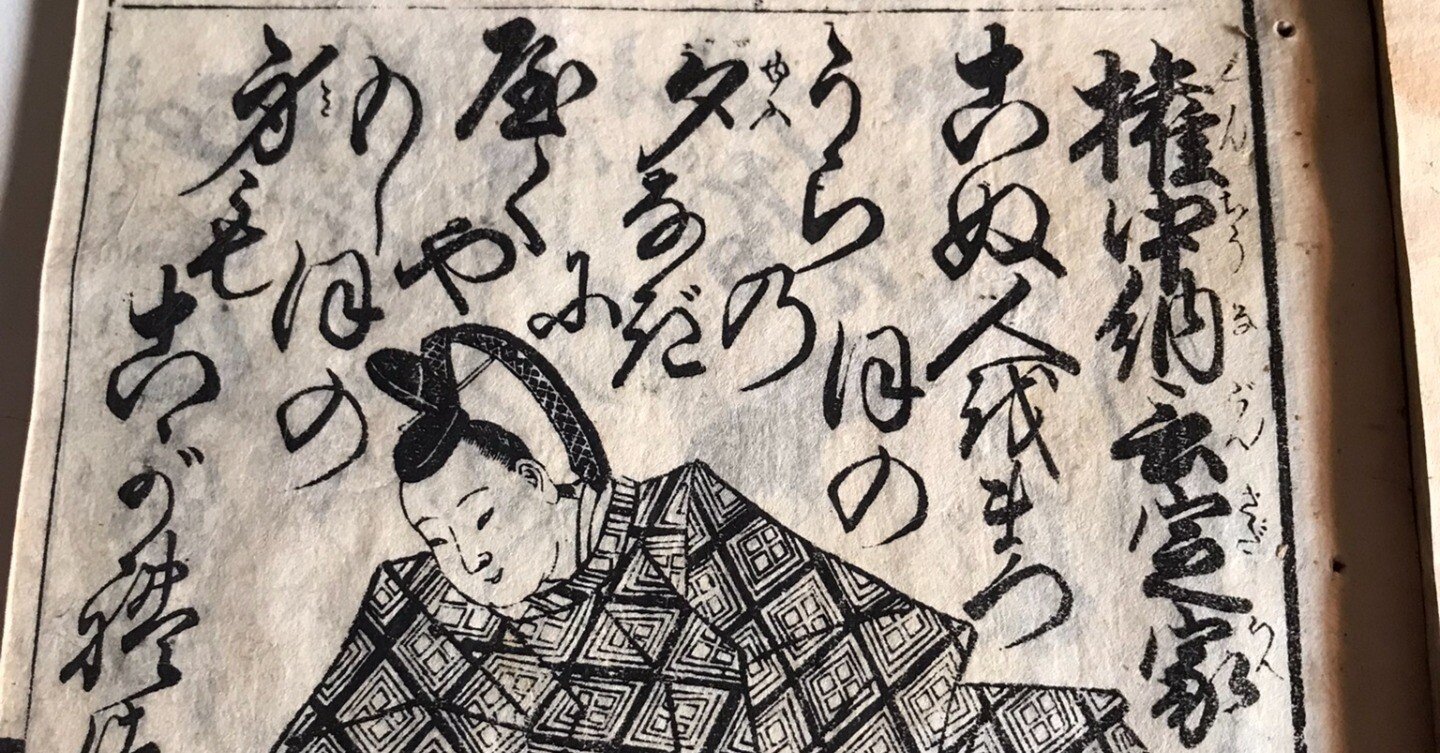 権中納言定家
こぬ人をまつ
ほの
うらの
夕なぎ
に
屋くや
もしほの
身も
こがれ